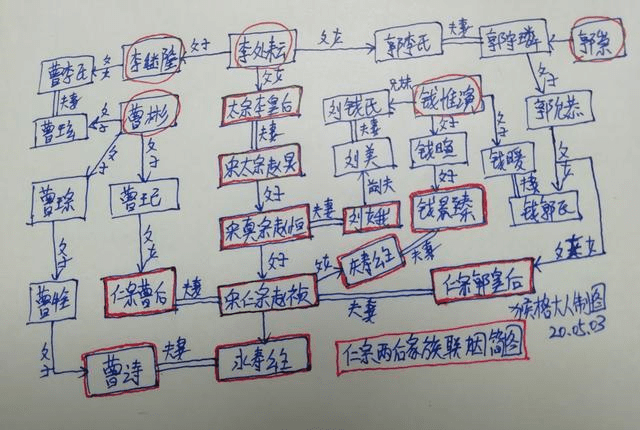 曹李氏
李继隆
父子
李处耘
父女
郭李氏
夫妻
郭守璘
郭崇
父女
夫妻
曹玹
父子
曹彬
父女
太宗李皇后
刘钱氏
兄妹
钱惟演
父子
郭允恭
夫妻
夫妻
父子
父子
刘美
钱暄
钱暖
父女
父子
父子
宋太宗赵炅
前夫
父子
夫妻
曹琮
曹玘
父子
宋真宗赵恒
夫妻
刘娥
钱景臻
钱郭氏
父子
父女
父子
父女
夫妻
父女
曹牷
仁宗曹后
夫妻
宋仁宗赵祯
夫妻
仁宗郭皇后
父子
曹诗
夫妻
永寿公主
仁宗两后家族联姻简图
格大人制图
20.05.03